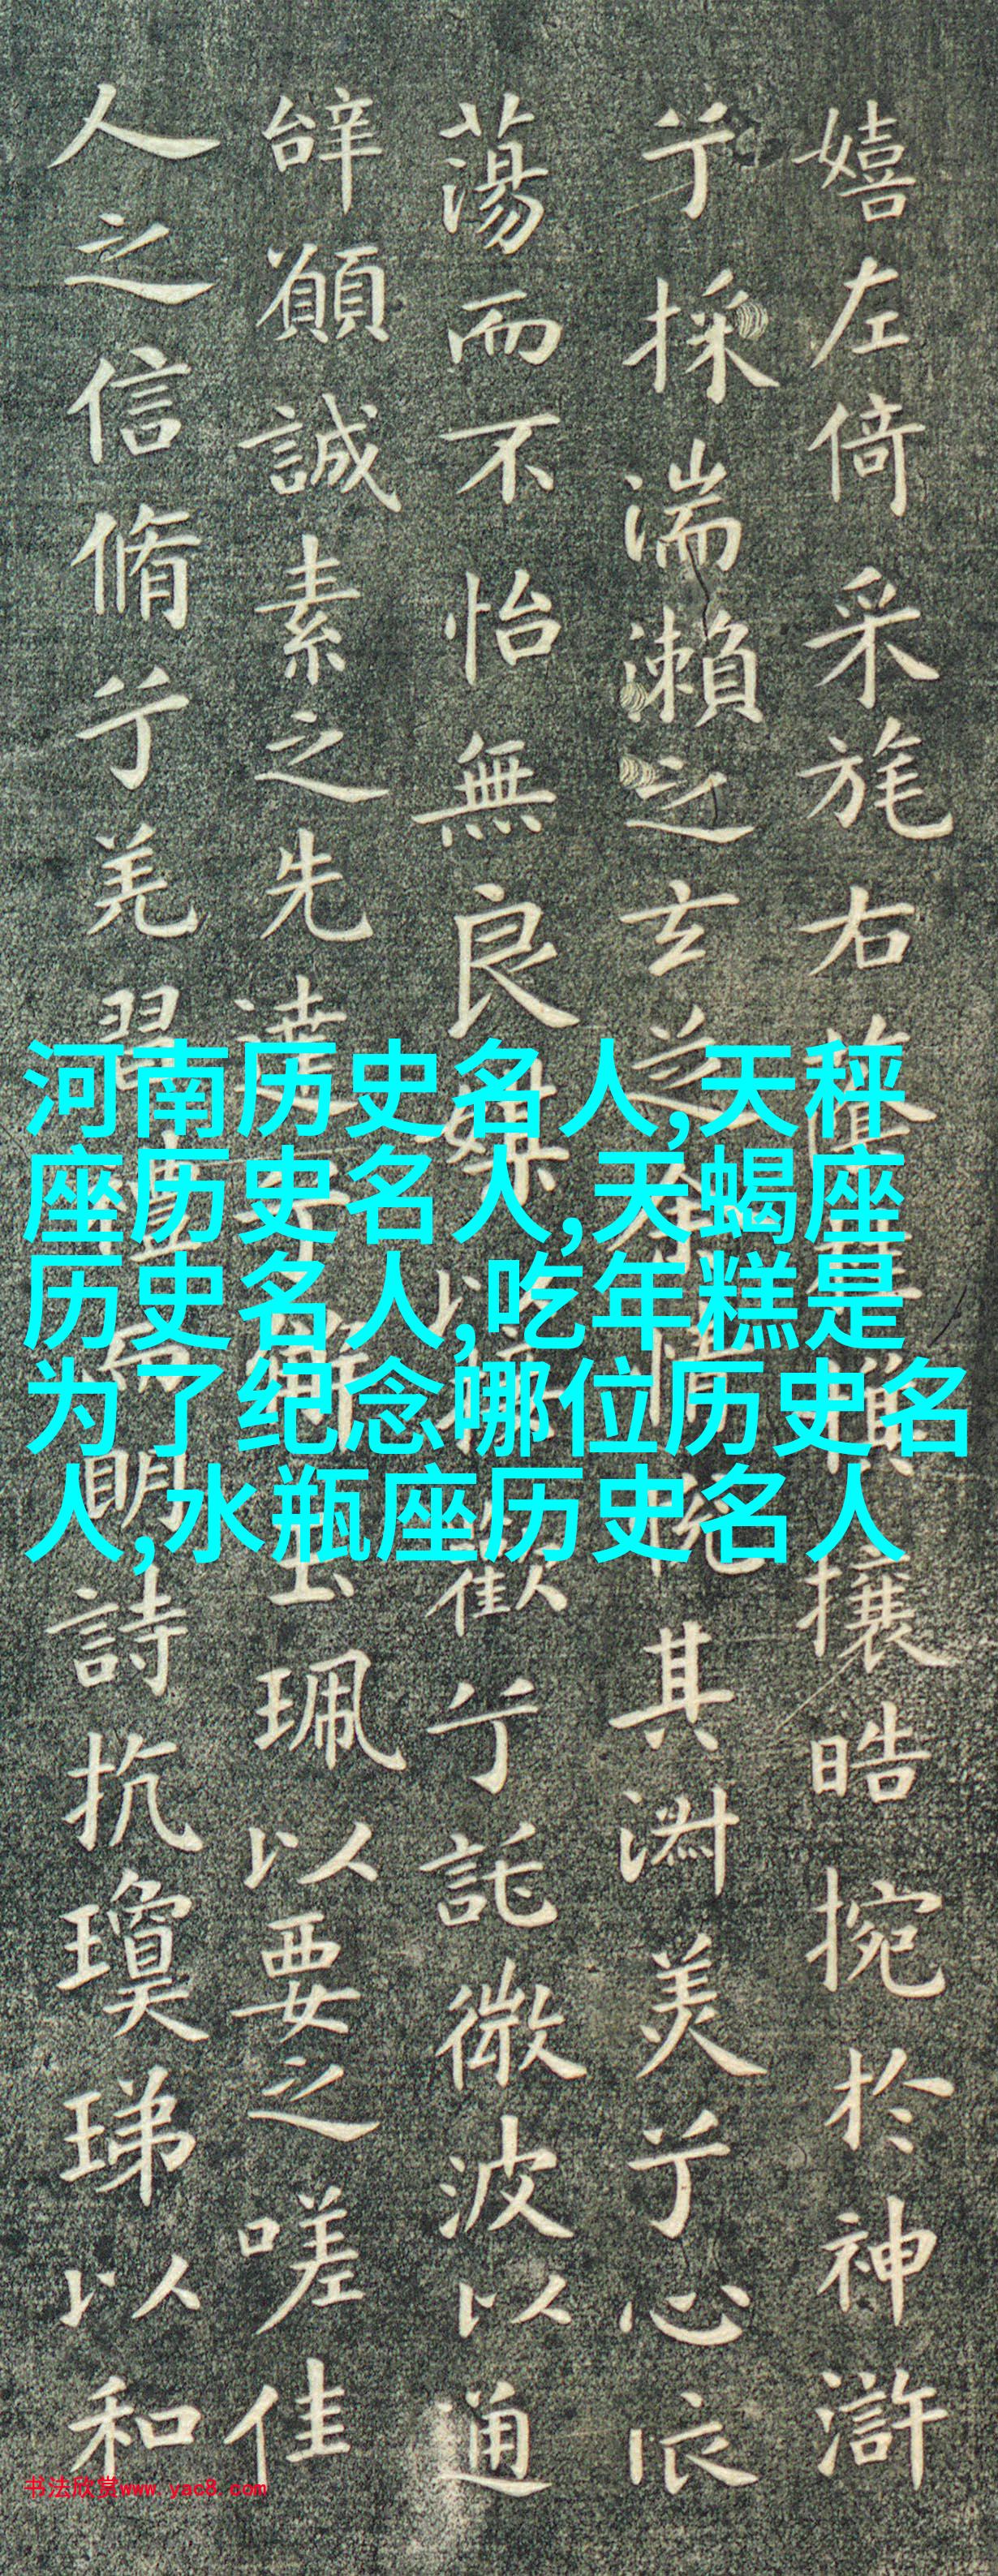 嬉左倚采旄右蔭攘皓捥於神滸
兮採湍瀨之玄芝情悅其淵美兮心依
蕩而不怡無良媒以接歡兮託微波以通
辝願誠素之先達解玉珮以要之嗟佳
人之信脩兮羌習禮而明詩抗瓊珶以和
河南历史名人,天秤
座历史名人,天蝎座
历史名人,吃年糕是
为了纪念哪位历史名
人,水瓶座历史名人
书法欣赏www.yac8.com